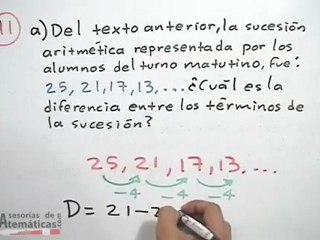 11 a) Del texto anterior, la sucesión
aritmética representada por los
alumnos del turno matutino, fue:
25, 21, 17, 13, ... ¿Cuál es la
diferencia entre los términos de
la sucesión?
25, 21, 17, 13, ...
-4 -4 -4
D = 21 - 2
asesorías de
matemáticas.